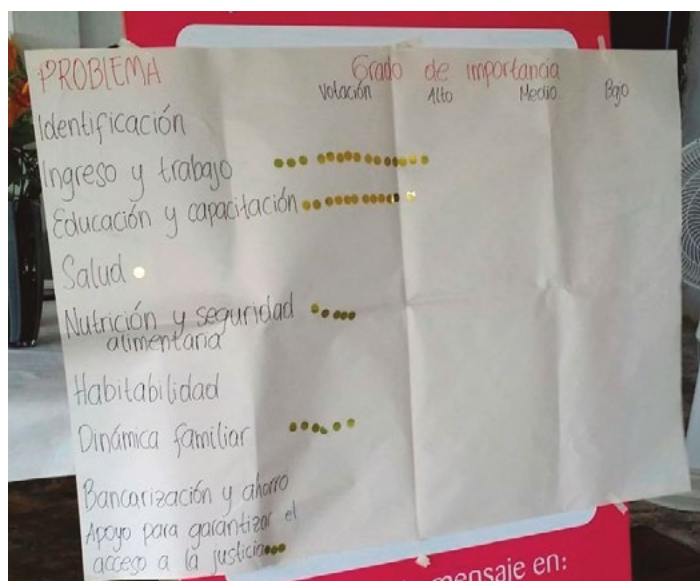 PROBLEMA Grado de importancia
Votación Alto Medio Bajo
Identificación
Ingreso y trabajo
Educación y capacitación
Salud
Nutrición y seguridad
alimentaria
Habitabilidad
Dinámica familiar
Bancarización y ahorro
Apoyo para garantizar el
acceso a la justicia
mensaje en: